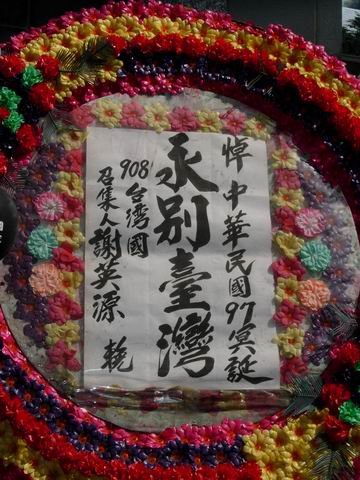 悼中華民國97冥誕
永別臺灣
908台湾國
召集人謝英源 輓